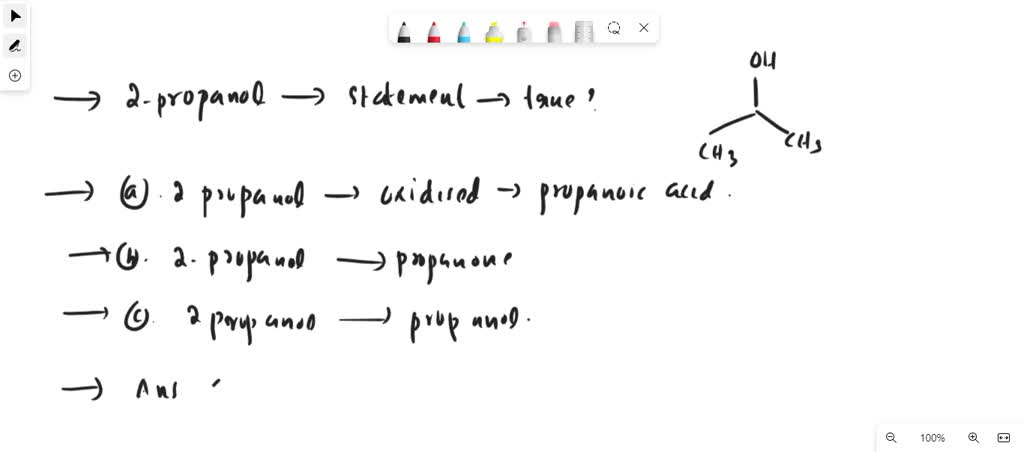 OH
→ 2-propanol → statement → true ?
CH3 CH3
→ (a). 2 propanol → oxidised → propanoic acid.
→ (b). 2. propanol → propanone
→ (c). 2 propanol → propanol.
→ Ans
100%